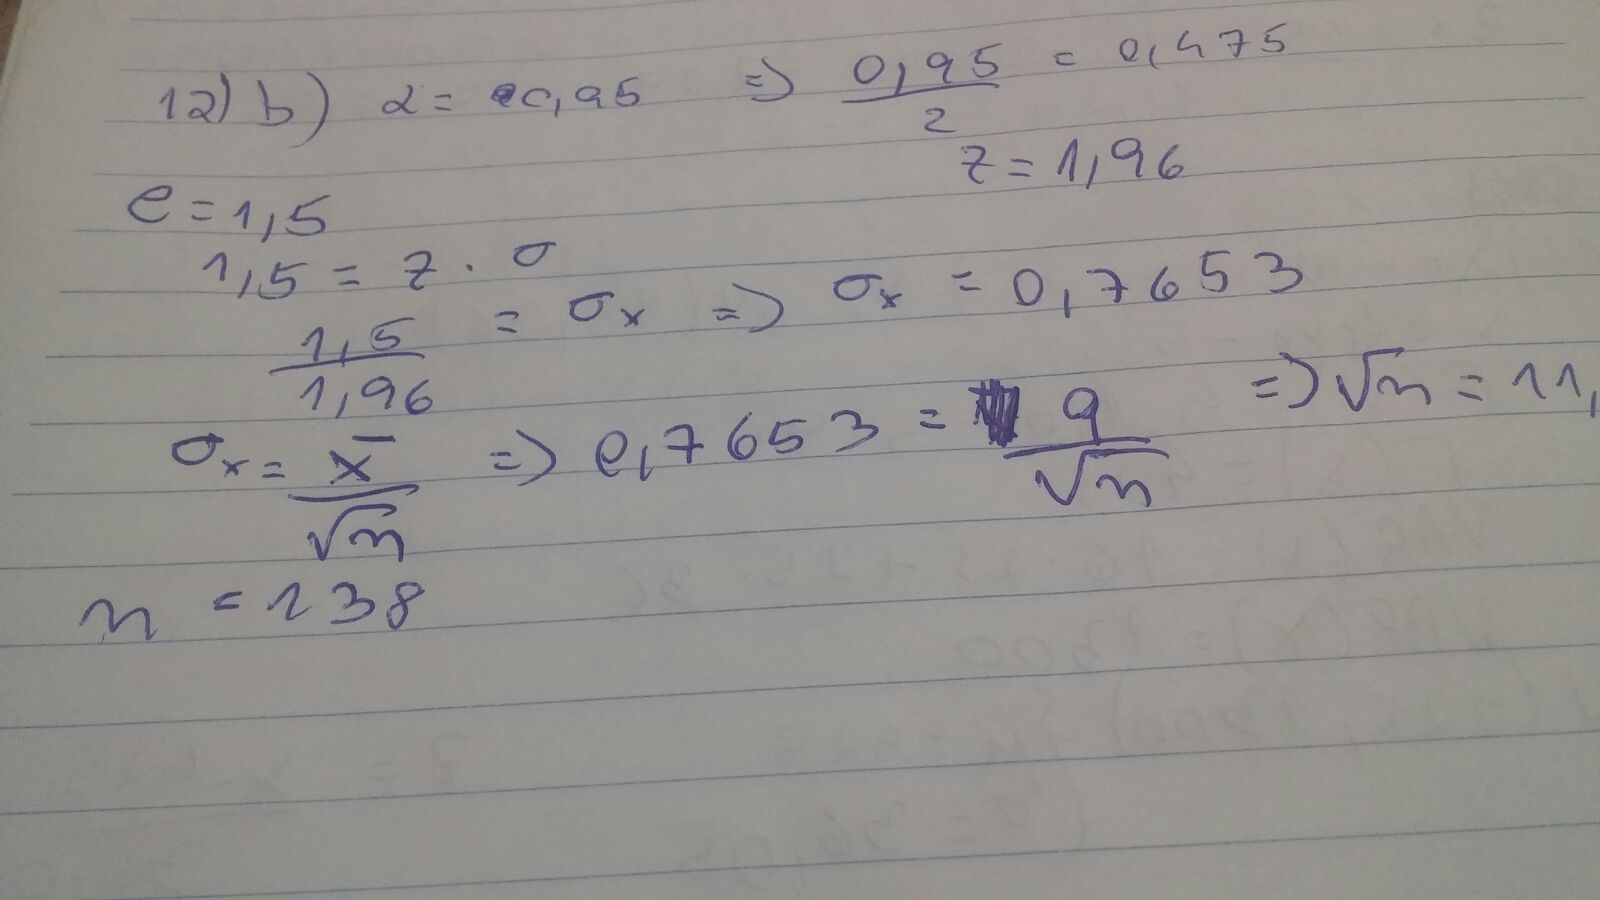 12) b) α = 0,95 => 0,95/2 = 0,475
z = 1,96
e = 1,5
1,5 = z . σ
1,5/1,96 = σx => σx = 0,7653
σx = x̄/√n => 0,7653 = 9/√n => √n = 11,
n = 138